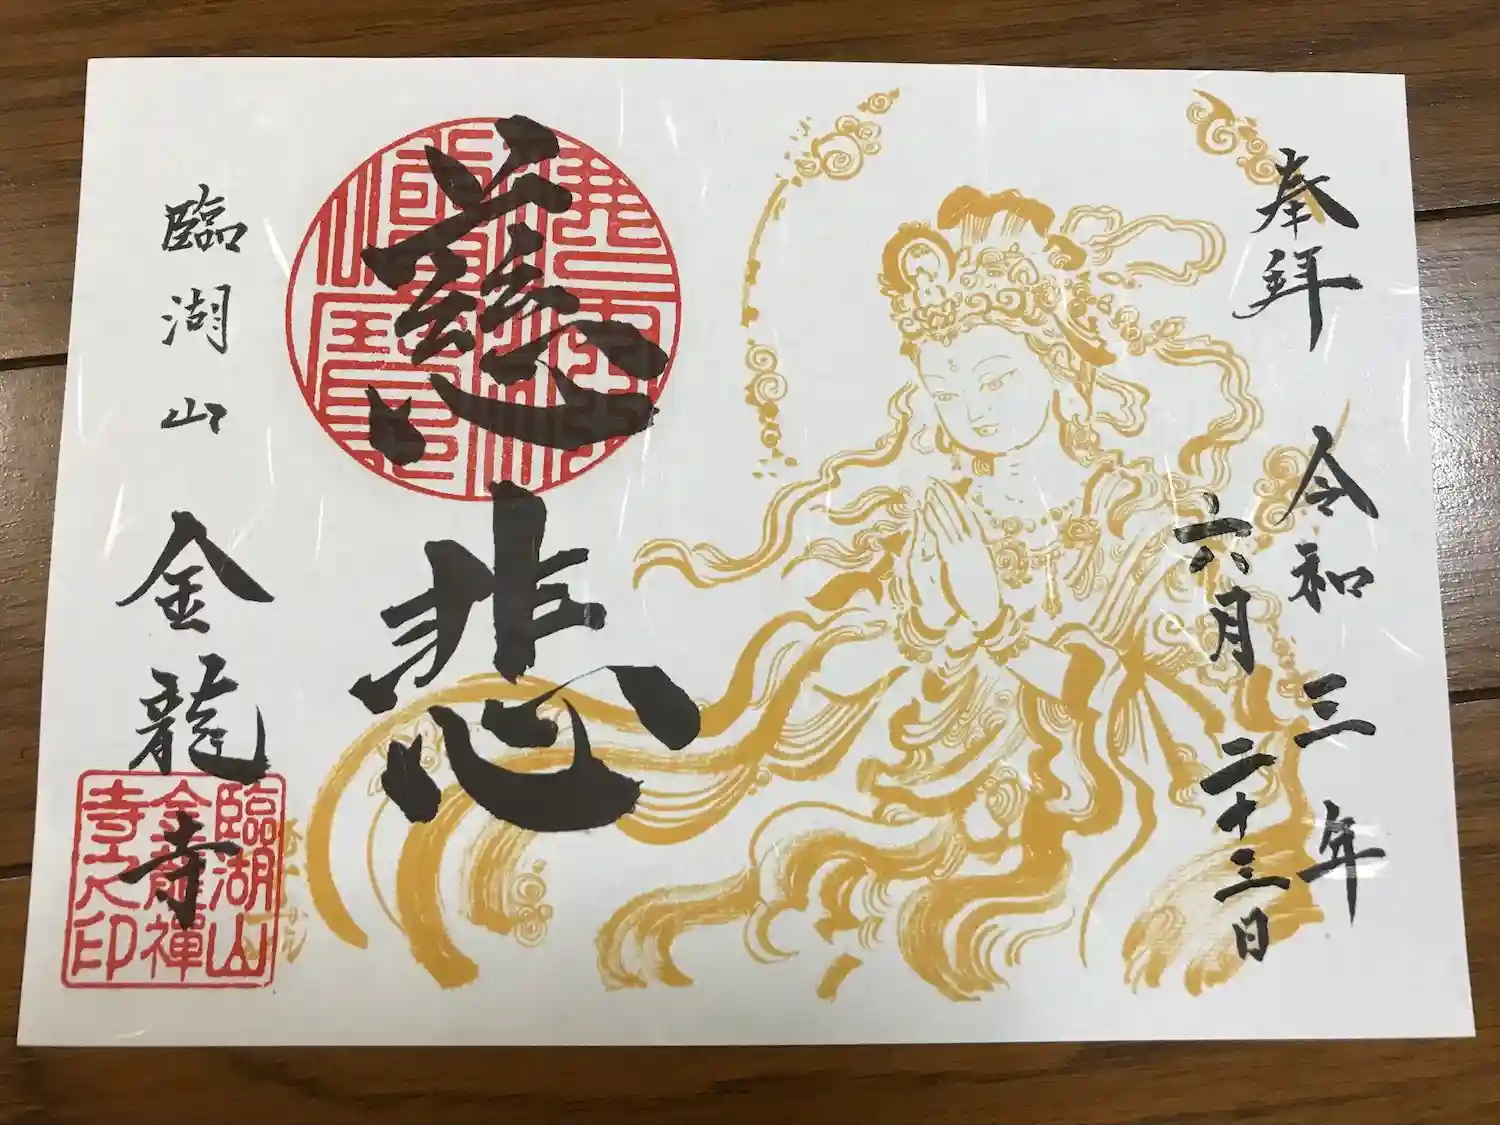 奉拝
令和三年
六月二十三日
慈悲
臨湖山
金龍寺
臨湖山
金龍禪
寺之印